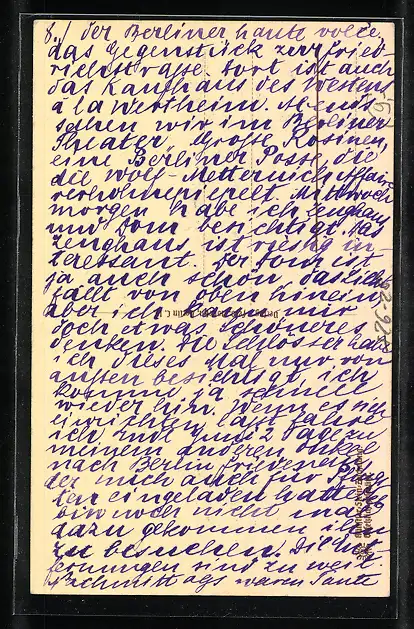 8.) der Berliner haute volée,
das Gegenstück zur Fried-
richstrasse. Dort ist auch
das Kaufhaus des Westens
a la Wertheim. Abends
sahen wir im Berliner
Theater, Große Rosinen,
eine Berliner Posse, die
die Wolf-Metternich Affaire
Mittwoch
morgen habe ich Zeughaus
und Dom besichtigt. Das
Zeughaus ist riesig in-
teressant. Der Dom ist
ja auch schön, das Licht
fällt von oben hinein,
aber ich kann mir
doch etwas Schöneres
denken. Die Schlösser hab
ich dieses Mal nur von
außen besichtigt, ich
komme ja schnell
wieder hin. Wenn es sich
einrichten läßt fahre
ich auf 2 Tage zu
meinem anderen Onkel
nach Berlin Friedenau,
der mich auch für
eingeladen hatte. Ich
bin noch nicht mal
dazu gekommen ihn
zu besuchen. Die Ent-
fernungen sind zu weit.
Nachmittags waren Tante